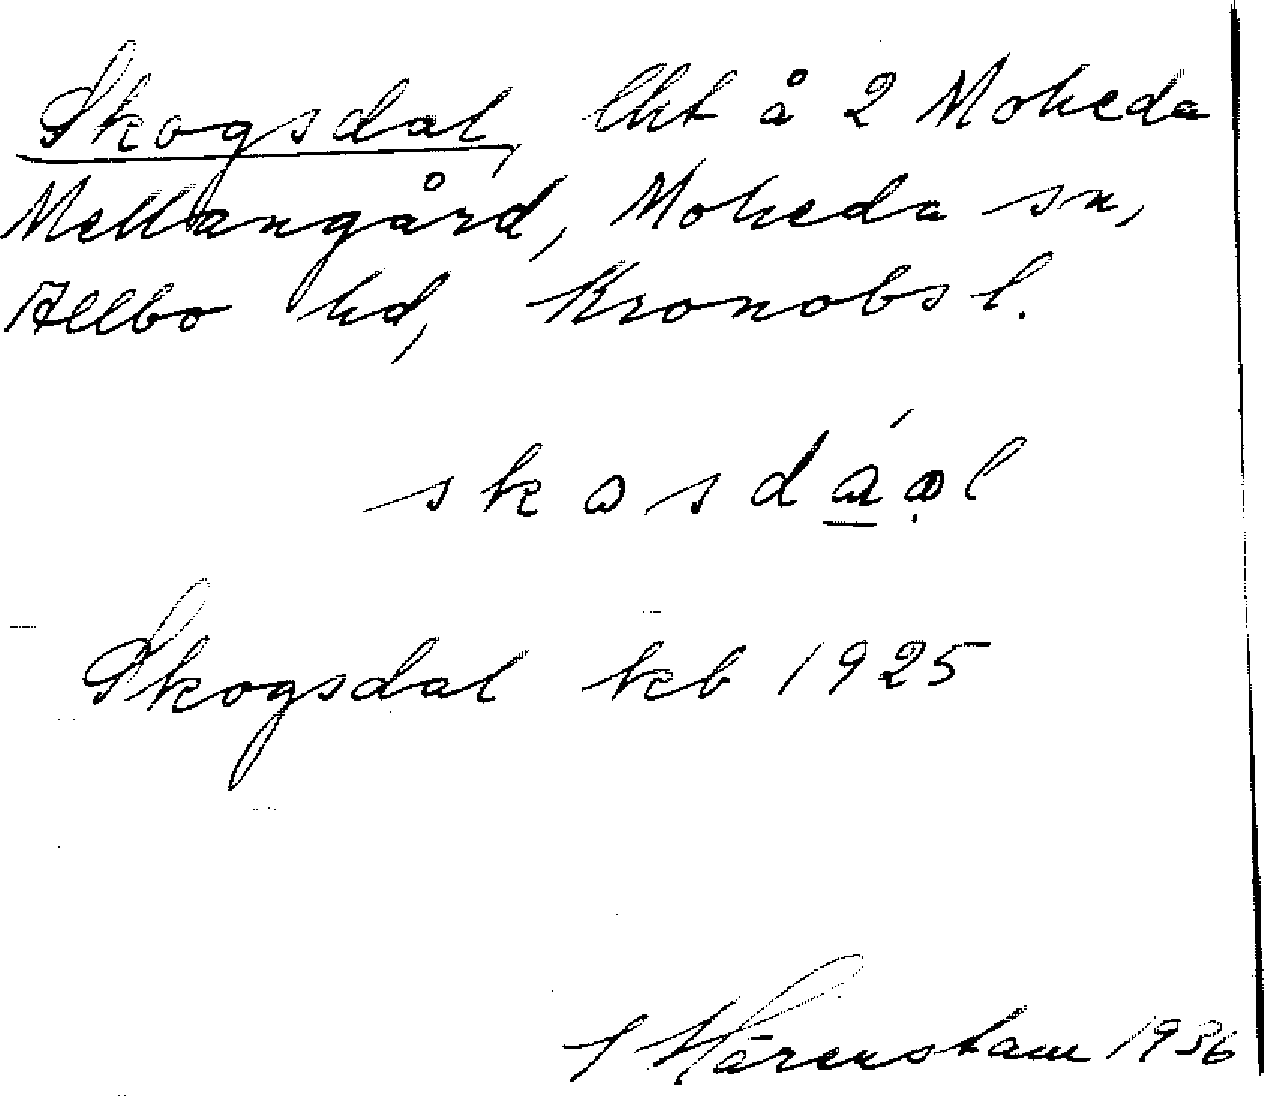 Skogsdal, lht å 2 Moheda
Mellangård, Moheda sn,
Allbo hd, Kronobs l.
skosdáal
Skogsdal kb 1925
Härenstam 1936